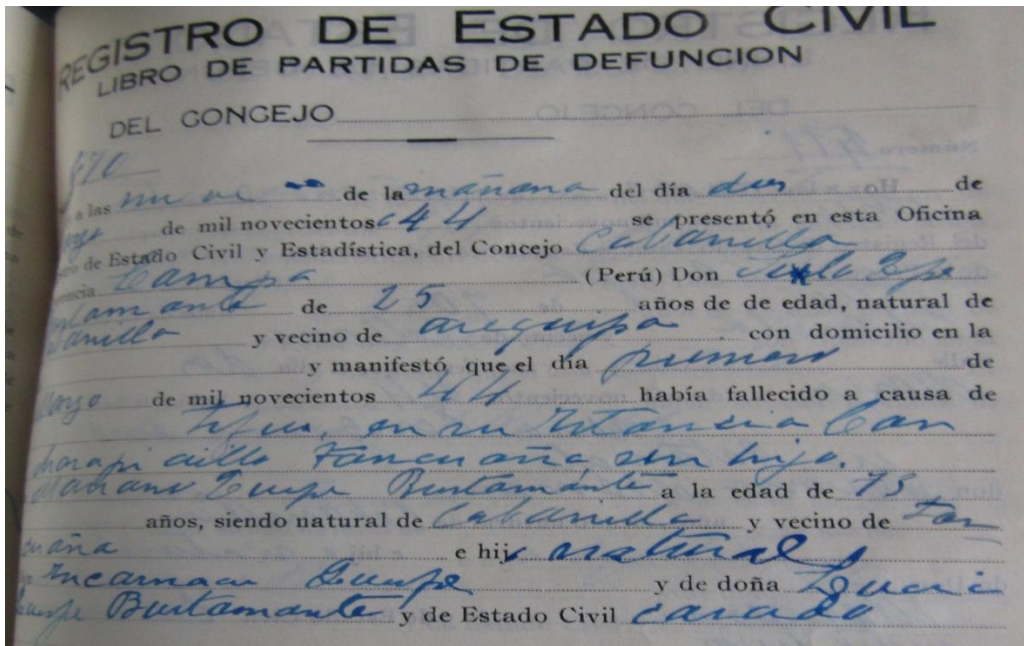 REGISTRO DE ESTADO CIVIL
LIBRO DE PARTIDAS DE DEFUNCION
DEL CONCEJO
470
a las nueve de la mañana del día dos de
mayo de mil novecientos 44 se presentó en esta Oficina
stro de Estado Civil y Estadística, del Concejo Cabanilla
vincia Lampa (Perú) Don
ustamante de 25 años de de edad, natural de
banilla y vecino de arequipa con domicilio en la
y manifestó que el día primero de
Mayo de mil novecientos 44 había fallecido a causa de
Tifus, en su Estancia Can
Tancuaña, un hijo,
Mariano Quispe Bustamante a la edad de 73
años, siendo natural de Cabanilla y vecino de Tan
cuaña e hijo natural
Encarnacion Quispe y de doña
Quispe Bustamante y de Estado Civil casado